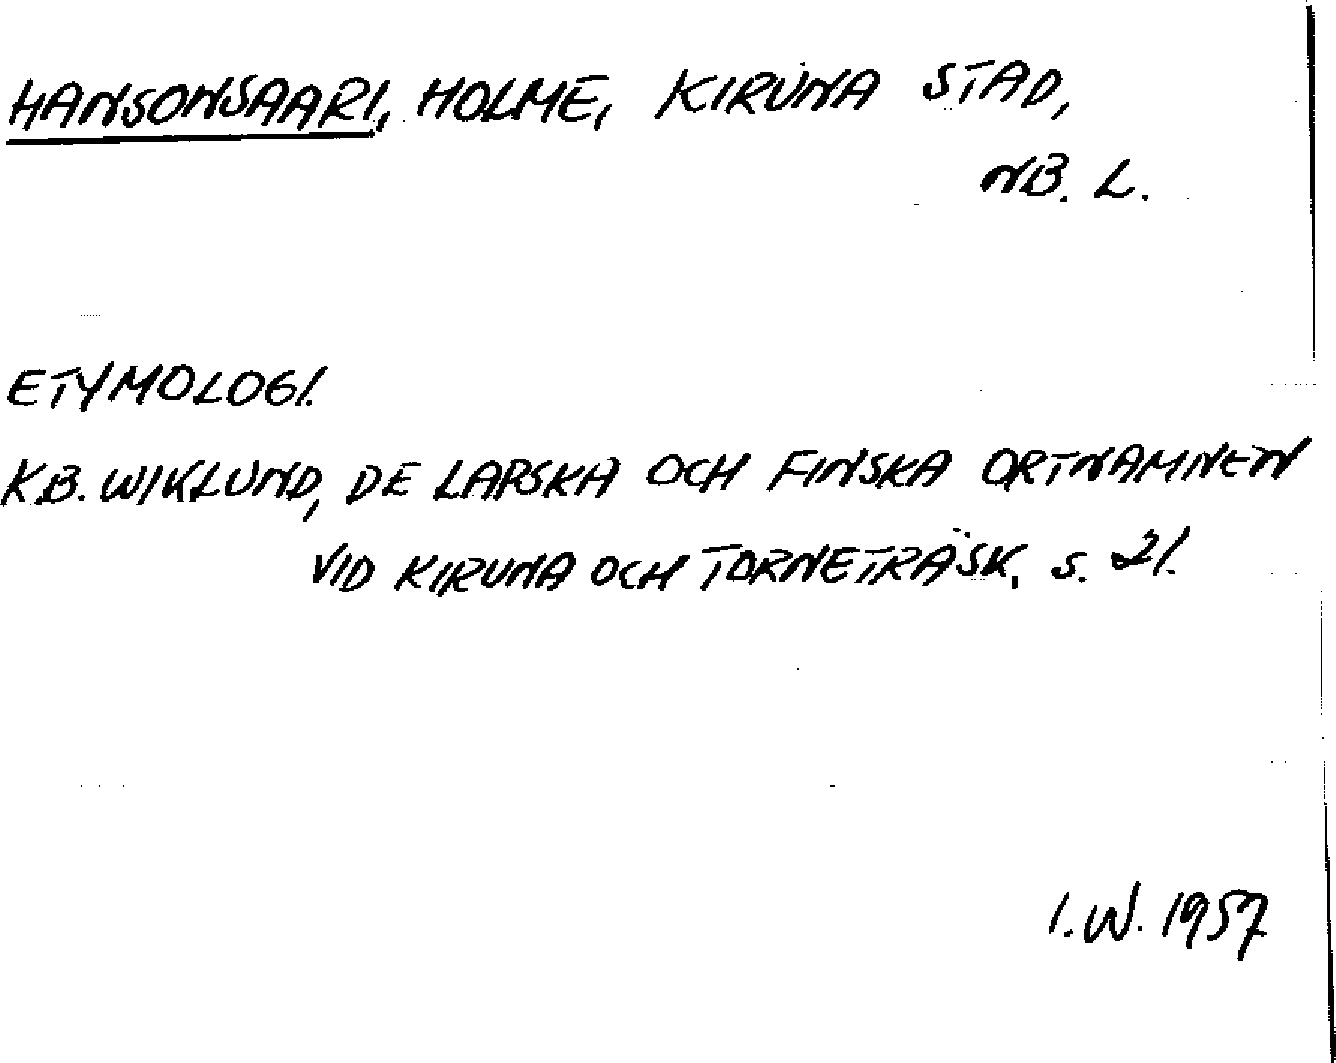 HANSONSAARI, HOLME, KIRUNA STAD,
NB. L.
ETYMOLOGI.
KB. WIKLUND, DE LAPSKA OCH FINSKA ORTNAMNEN
VID KIRUNA OCH TORNETRÄSK, s. 21.
I.W. 1957